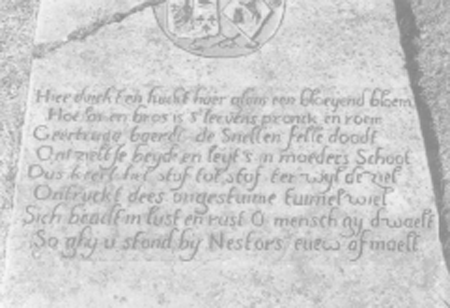 Hier druckt en huckt hier als een bloeyend bloem
Hoe los en bros is s'leevens pronck en roem
Geertruyd baerdt de Snellen felle doodt
Ontzielt se beyde en leyt s in moeders Schoot
Dus keert het stof tot stof ter wyl de ziel
Ontruckt dees ongestuime tuimel wiel
Sich baadt in lust en rust O mensch ay dwaelt
So ghy u stond by Nestors eeuw afmaelt